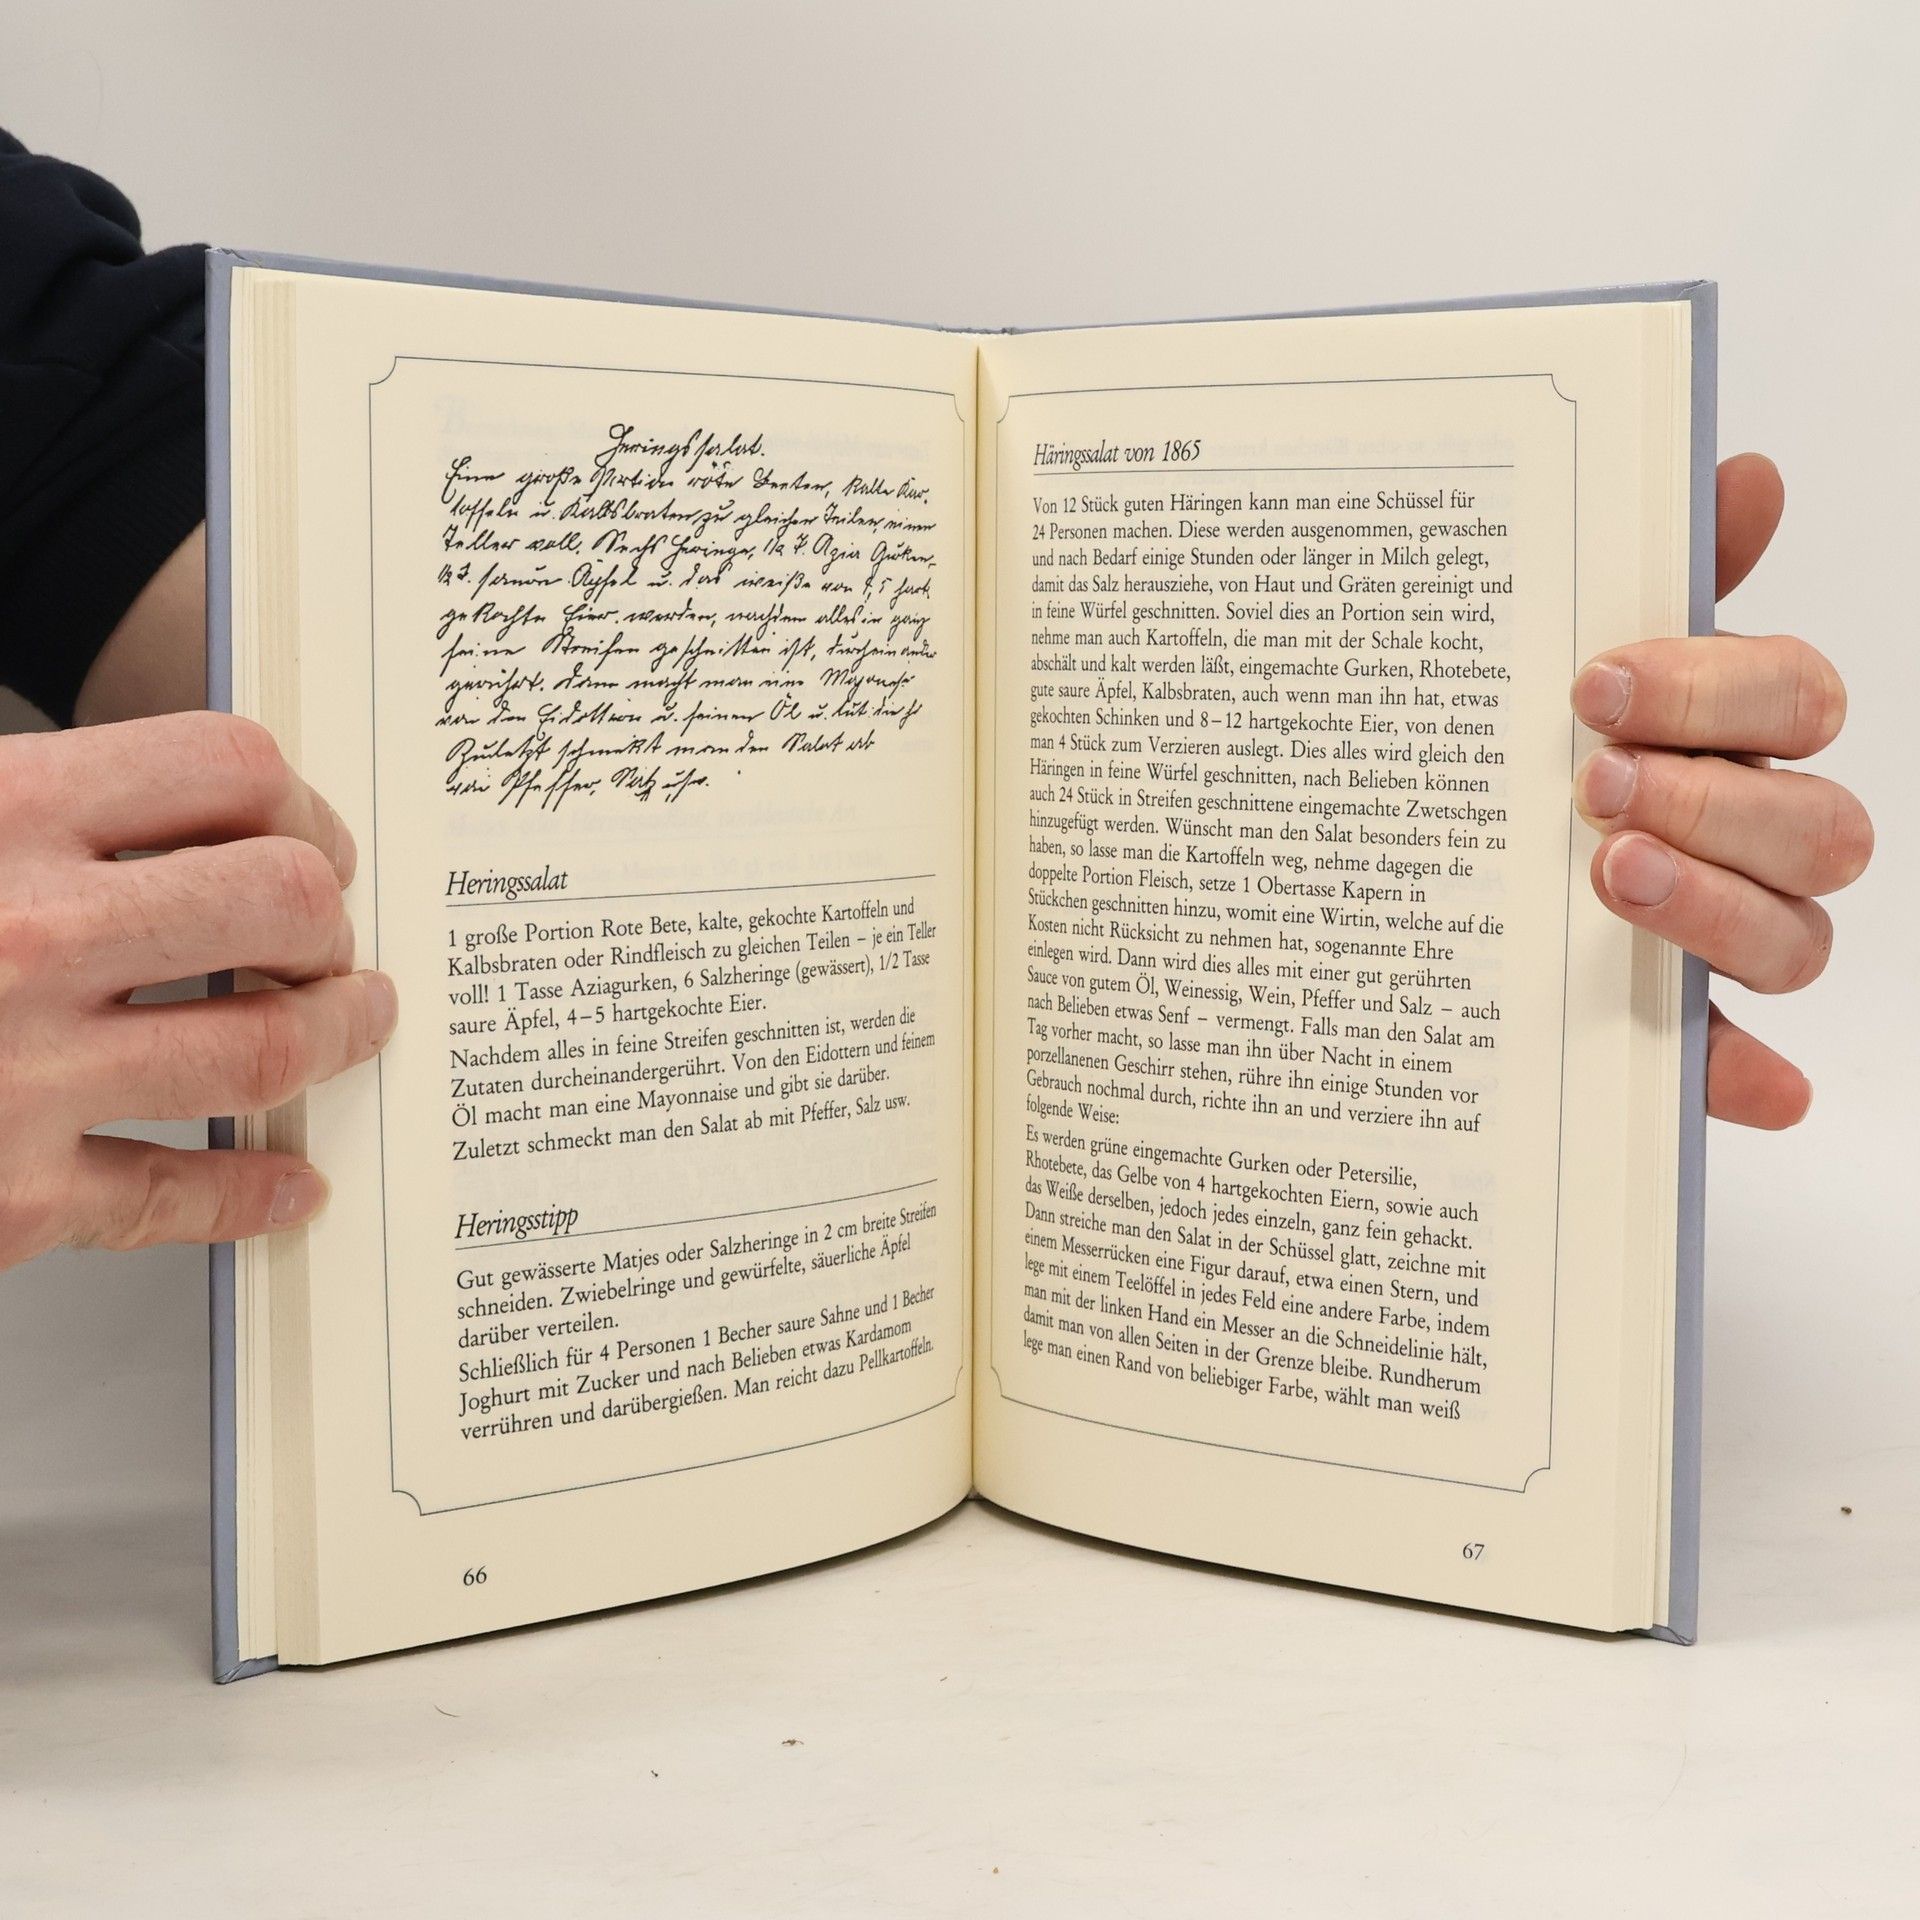 Heringssalat.
Eine große Portion röte Beeten, kalte Kar-
toffeln u. Kalbsbraten zu gleichen Teilen, einen
Teller voll. Sechs Heringe, 1/2 T. Azia Gurken,
1/2 T. saure Äpfel u. das weiße von 4, 5 hart
gekochte Eier. werden, nachdem alles in ganz
feine Streifen geschnitten ist, durcheinander
gerührt. Dann macht man eine
von den Eidottern u. feinen Öl u.
Zuletzt schmekt man den Salat ab
von Pfeffer, Salz usw.
Heringssalat
1 große Portion Rote Bete, kalte, gekochte Kartoffeln und
Kalbsbraten oder Rindfleisch zu gleichen Teilen – je ein Teller
voll! 1 Tasse Aziagurken, 6 Salzheringe (gewässert), 1/2 Tasse
saure Äpfel, 4–5 hartgekochte Eier.
Nachdem alles in feine Streifen geschnitten ist, werden die
Zutaten durcheinandergerührt. Von den Eidottern und feinem
Öl macht man eine Mayonnaise und gibt sie darüber.
Zuletzt schmeckt man den Salat ab mit Pfeffer, Salz usw.
Heringsstipp
Gut gewässerte Matjes oder Salzheringe in 2 cm breite Streifen
schneiden. Zwiebelringe und gewürfelte, säuerliche Äpfel
darüber verteilen.
Schließlich für 4 Personen 1 Becher saure Sahne und 1 Becher
Joghurt mit Zucker und nach Belieben etwas Kardamom
verrühren und darübergießen. Man reicht dazu Pellkartoffeln.
66
Häringssalat von 1865
Von 12 Stück guten Häringen kann man eine Schüssel für
24 Personen machen. Diese werden ausgenommen, gewaschen
und nach Bedarf einige Stunden oder länger in Milch gelegt,
damit das Salz herausziehe, von Haut und Gräten gereinigt und
in feine Würfel geschnitten. Soviel dies an Portion sein wird,
nehme man auch Kartoffeln, die man mit der Schale kocht,
abschält und kalt werden läßt, eingemachte Gurken, Rhotebete,
gute saure Äpfel, Kalbsbraten, auch wenn man ihn hat, etwas
gekochten Schinken und 8–12 hartgekochte Eier, von denen
man 4 Stück zum Verzieren auslegt. Dies alles wird gleich den
Häringen in feine Würfel geschnitten, nach Belieben können
auch 24 Stück in Streifen geschnittene eingemachte Zwetschgen
hinzugefügt werden. Wünscht man den Salat besonders fein zu
haben, so lasse man die Kartoffeln weg, nehme dagegen die
doppelte Portion Fleisch, setze 1 Obertasse Kapern in
Stückchen geschnitten hinzu, womit eine Wirtin, welche auf die
Kosten nicht Rücksicht zu nehmen hat, sogenannte Ehre
einlegen wird. Dann wird dies alles mit einer gut gerührten
Sauce von gutem Öl, Weinessig, Wein, Pfeffer und Salz – auch
nach Belieben etwas Senf – vermengt. Falls man den Salat am
Tag vorher macht, so lasse man ihn über Nacht in einem
porzellanenen Geschirr stehen, rühre ihn einige Stunden vor
Gebrauch nochmal durch, richte ihn an und verziere ihn auf
folgende Weise:
Es werden grüne eingemachte Gurken oder Petersilie,
Rhotebete, das Gelbe von 4 hartgekochten Eiern, sowie auch
das Weiße derselben, jedoch jedes einzeln, ganz fein gehackt.
Dann streiche man den Salat in der Schüssel glatt, zeichne mit
einem Messerrücken eine Figur darauf, etwa einen Stern, und
lege mit einem Teelöffel in jedes Feld eine andere Farbe, indem
man mit der linken Hand ein Messer an die Schneidelinie hält,
damit man von allen Seiten in der Grenze bleibe. Rundherum
lege man einen Rand von beliebiger Farbe, wählt man weiß
67